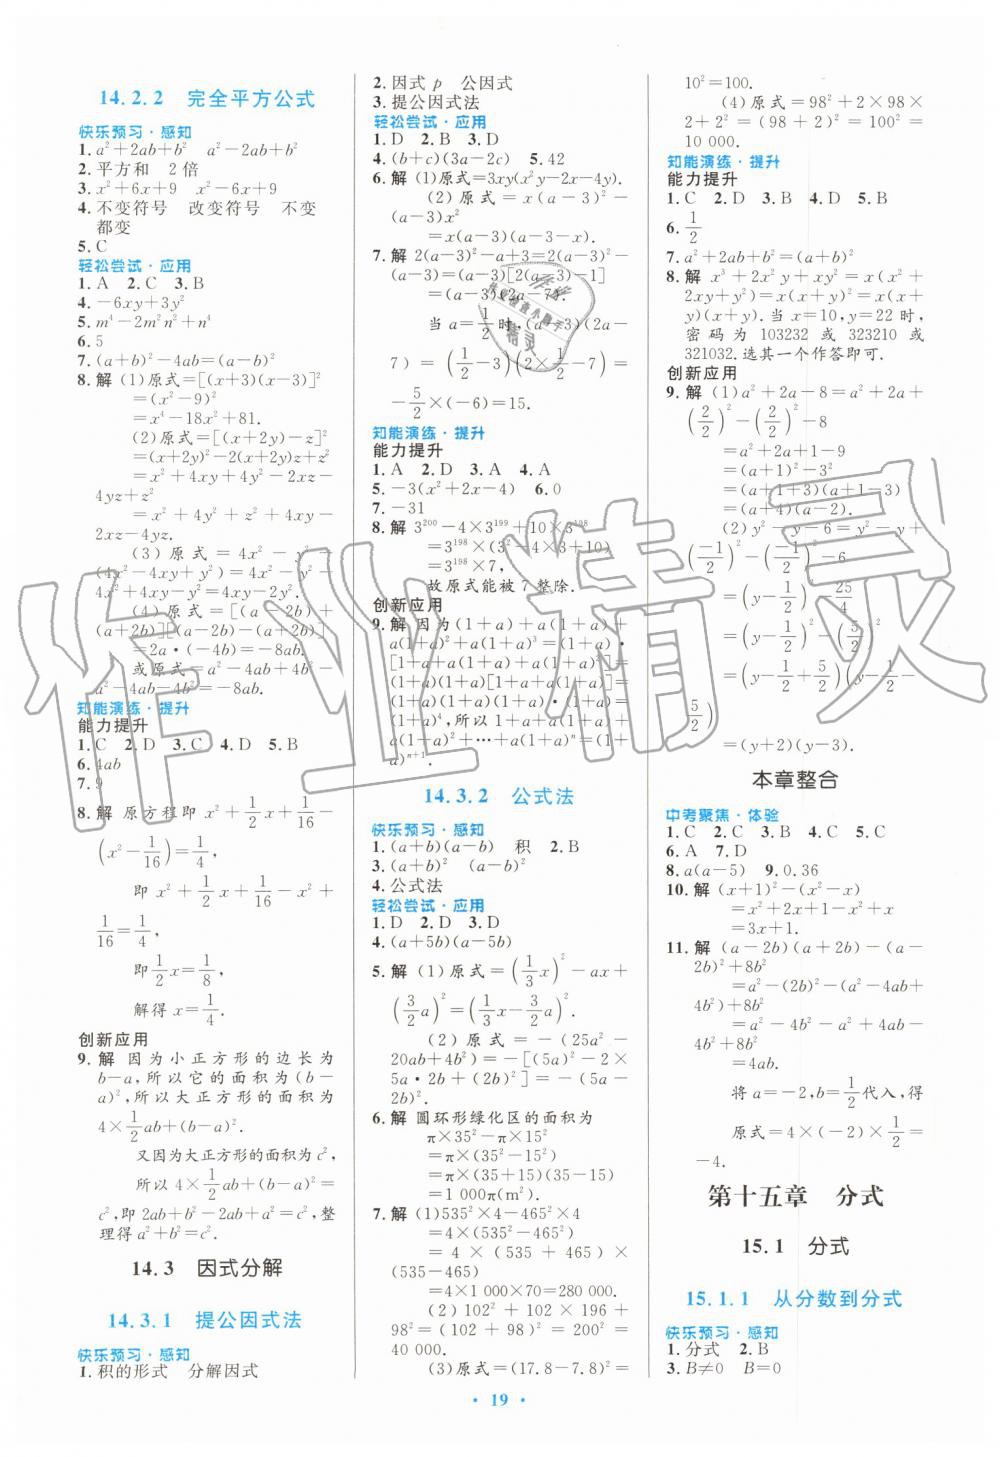 14.2.2 完全平方公式
快乐预习·感知
1.a²+2ab+b² a²-2ab+b²
2.平方和 2倍
3.x²+6x+9 x²-6x+9
4.不变符号 改变符号 不变
都变
5.C
轻松尝试·应用
1.A 2.C 3.C
4.-6xy+3y²
5.m⁴-2m²n²+n⁴
6.5
7.(a+b)²-4ab=(a-b)²
8.解 (1)原式=[(x+3)(x-3)]²
=(x²-9)²
=x⁴-18x²+81.
(2)原式=[(x+2y)-z]²
=(x+2y)²-2(x+2y)z+z²
=x²+4xy+4y²-2xz-
4yz+z²
=x²+4y²+z²+4xy-2xz-4yz.
(3)原式=4x²-y²-
(4x²-4xy+y²)=4x²-y²-
4x²+4xy-y²=4xy-2y².
(4)原式=[(a-2b)+
(a+2b)][(a-2b)-(a+2b)]
=2a·(-4b)=-8ab.
或原式=a²-4ab+4b²-
a²-4ab-4b²=-8ab.
知能演练·提升
能力提升
1.C 2.D 3.C 4.D 5.B
6.4ab
7.9
8.解 原方程即 x²+1/2x+1/16
-(x²-1/16)=1/4,
即 x²+1/2x+1/16-x²+
1/16=1/4,
即1/2x=1/8,
解得 x=1/4.
创新应用
9.解 因为小正方形的边长为
b-a,所以它的面积为(b-
a)²,所以大正方形的面积为
4×1/2ab+(b-a)².
又因为大正方形的面积为c²,
所以 4×1/2ab+(b-a)²=
c²,即 2ab+b²-2ab+a²=c²,整
理得 a²+b²=c².
14.3 因式分解
14.3.1 提公因式法
快乐预习·感知
1.积的形式 分解因式
2.因式 p 公因式
3.提公因式法
轻松尝试·应用
1.D 2.B 3.D
4.(b+c)(3a-2c) 5.42
6.解 (1)原式=3xy(x²y-2x-4y).
(2)原式=x(a-3)²-
(a-3)x²
=x(a-3)(a-3-x).
7.解 2(a-3)²-a+3=2(a-3)²
-(a-3)=(a-3)[2(a-3)-1]
=(a-3)(2a-7).
当 a=1/2时,(a-3)(2a-
7)=(1/2-3)(2×1/2-7)=
-5/2×(-6)=15.
知能演练·提升
能力提升
1.A 2.D 3.A 4.A
5.-3(x²+2x-4) 6.0
7.-31
8.解 3²⁰⁰-4×3¹⁹⁹+10×3¹⁹⁸
=3¹⁹⁸×(3²-4×3+10)
=3¹⁹⁸×7,
故原式能被 7 整除.
创新应用
9.解 因为(1+a)+a(1+a)+
a(1+a)²+a(1+a)³=(1+a)·
[1+a+a(1+a)+a(1+a)²]=
(1+a)(1+a)[1+a+a(1+a)]=
(1+a)(1+a)(1+a)·(1+a)=
(1+a)⁴,所以 1+a+a(1+a)+
a(1+a)²+…+a(1+a)ⁿ=(1+
a)ⁿ⁺¹.
14.3.2 公式法
快乐预习·感知
1.(a+b)(a-b) 积 2.B
3.(a+b)² (a-b)²
4.公式法
轻松尝试·应用
1.D 2.D 3.D
4.(a+5b)(a-5b)
5.解 (1)原式=(1/3x)²-ax+
(3/2a)²=(1/3x-3/2a)².
(2)原式=-(25a²-
20ab+4b²)=-[(5a)²-2×
5a·2b+(2b)²]=-(5a-2b)².
6.解 圆环形绿化区的面积为
π×35²-π×15²
=π×(35²-15²)
=π×(35+15)(35-15)
=1 000π(m²).
7.解 (1)535²×4-465²×4
=4×(535²-465²)
=4×(535+465)×
(535-465)
=4×1 000×70=280 000.
(2)102²+102×196+
98²=(102+98)²=200²=
40 000.
(3)原式=(17.8-7.8)²=
10²=100.
(4)原式=98²+2×98×
2+2²=(98+2)²=100²=
10 000.
知能演练·提升
能力提升
1.C 2.D 3.B 4.D 5.B
6.1/2
7.a²+2ab+b²=(a+b)²
8.解 x³+2x²y+xy²=x(x²+
2xy+y²)=x(x+y)²,
当 x=10,y=22 时,
密码为 103232 或 323210 或
321032.选其一个作答即可.
创新应用
9.解 (1)a²+2a-8=a²+2a+
(2/2)²-(2/2)²-8
=a²+2a+1-9
=(a+1)²-3²
=(a+1+3)(a+1-3)
=(a+4)(a-2).
(2)y²-y-6=y²-y+
(-1/2)²-(-1/2)²-6
=(y-1/2)²-25/4
=(y-1/2)²-(5/2)²
=(y-1/2+5/2)(y-1/2-
5/2)
=(y+2)(y-3).
本章整合
中考聚焦·体验
1.C 2.C 3.C 4.C 5.C
6.A 7.D
8.a(a-5) 9.0.36
10.解 (x+1)²-(x²-x)
=x²+2x+1-x²+x
=3x+1.
11.解 (a-2b)(a+2b)-(a-
2b)²+8b²
=a²-(2b)²-(a²-4ab+
4b²)+8b²
=a²-4b²-a²+4ab-
4b²+8b²
=4ab.
将 a=-2,b=1/2代入,得
原式=4×(-2)×1/2=
-4.
第十五章 分式
15.1 分式
15.1.1 从分数到分式
快乐预习·感知
1.分式 2.B
3.B≠0 B=0
· 19 ·
作业精灵